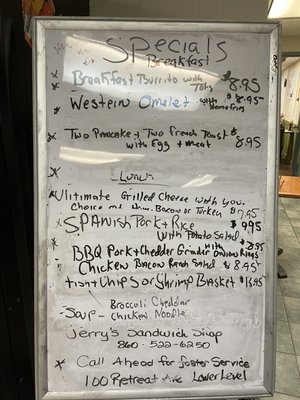 Specials
Breakfast
Breakfast Burrito with Tots $8.95
Western Omelet with Home Fries $8.95
Two Pancake & Two French Toast $8.95
with Egg & Meat
Lunch
Ulitimate Grilled Cheese with you.
Choice of Ham. Bacon or Turkey $7.95
Spanish Pork & Rice $9.95
with Potato Salad
BBQ Pork & Cheddar Grinder with Onion Rings $8.95
Chicken Bacon Ranch Salad $8.95
Fish & Chips or Shrimp Basket
Broccoli Cheddar
Soup - Chicken Noodle
Jerry's Sandwich Shop
860-522-6250
Call Ahead for faster Service
100 Retreat Ave Lower Level